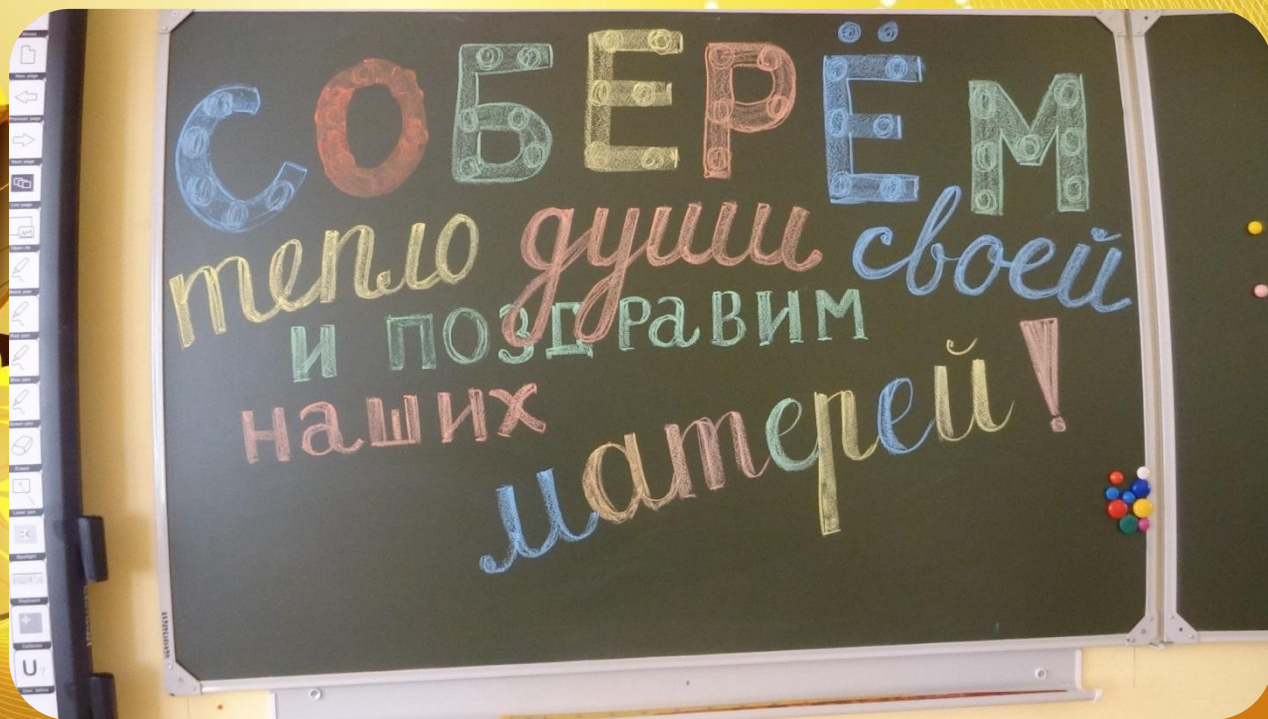 СОБЕРЁМ
тепло души своей
и поздравим
наших
матерей!